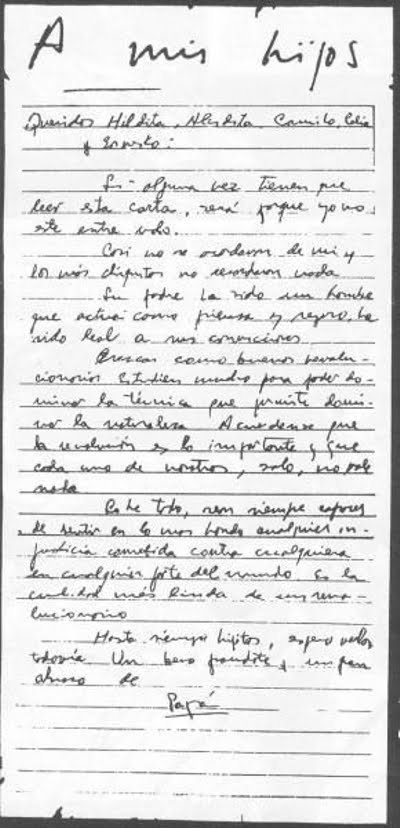 A mis hijos
Queridos Hildita, Aleidita, Camilo, Celia
y Ernesto:
Si alguna vez tienen que
leer esta carta, será porque yo no
esté entre Uds.
Casi no se acordaran de mi y
los más chiquitos no recordaran nada
Su padre ha sido un hombre
que actúa como piensa y seguro, ha
sido leal a sus convicciones
Crezcan como buenos revolu-
cionarios Estudien mucho para poder do-
minar la técnica que permite domi-
nar la naturaleza Acuerdense que
la revolución es lo importante y que
cada uno de nosotros, solo, no vale
nada
Sobre todo, sean siempre capaces
de sentir en lo más hondo cualquier in-
justicia cometida contra cualquiera
en cualquier parte del mundo Es la
cualidad más linda de un revo-
lucionario
Hasta siempre hijitos, espero verlos
todavía Un beso grandote y un gran
abrazo de
Papá